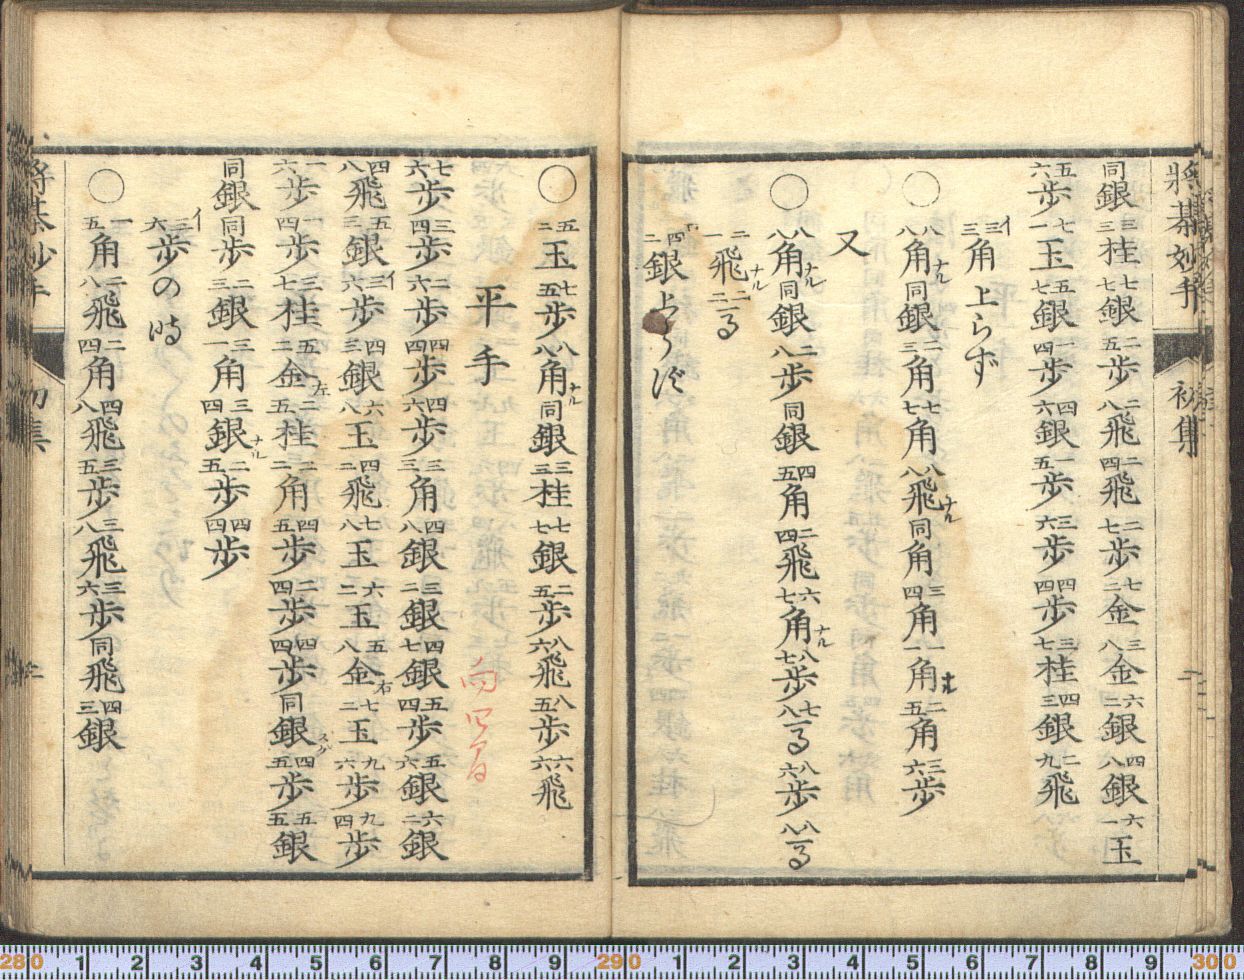 將棊妙手 初集
同銀三三桂七七銀二五歩二八飛二四飛二七歩七二金三八金六二銀四八銀六一玉
五六歩七一玉五七銀一四歩四六銀一五歩三六歩四四歩三七桂四三銀二九飛
イ三三角上らず
○八八角ナル同銀二三角七七角八八飛ナル同角三四角一一角ナル二五角三六歩
又
○八八角ナル同銀二八歩同銀四五角二四飛六七角ナル八七歩七八馬八六歩八八馬
二一飛ナル二二馬
四二銀上らば
○五二玉七五歩八八角ナル同銀三三桂七七銀二五歩八六飛八五歩六六飛
平手 向四間
七六歩三四歩二六歩四四歩四六歩三三角四八銀三二銀四七銀五四歩五六銀六二銀
四八飛五三銀イ三六歩四三銀六八玉四二飛七八玉六二玉五八金右七二玉九六歩九四歩
一六歩一四歩三七桂五二金左二五桂二二角四五歩二四歩四四歩同銀スグ四五歩五五銀
同銀同歩二三銀三一角三四銀ナル二五歩四四歩
イ三六歩の時
○一五角二八飛二四角四八飛三五歩三八飛三六歩同飛四三銀
將棊妙手 初集
280 1 2 3 4 5 6 7 8 9 290 1 2 3 4 5 6 7 8 9 300